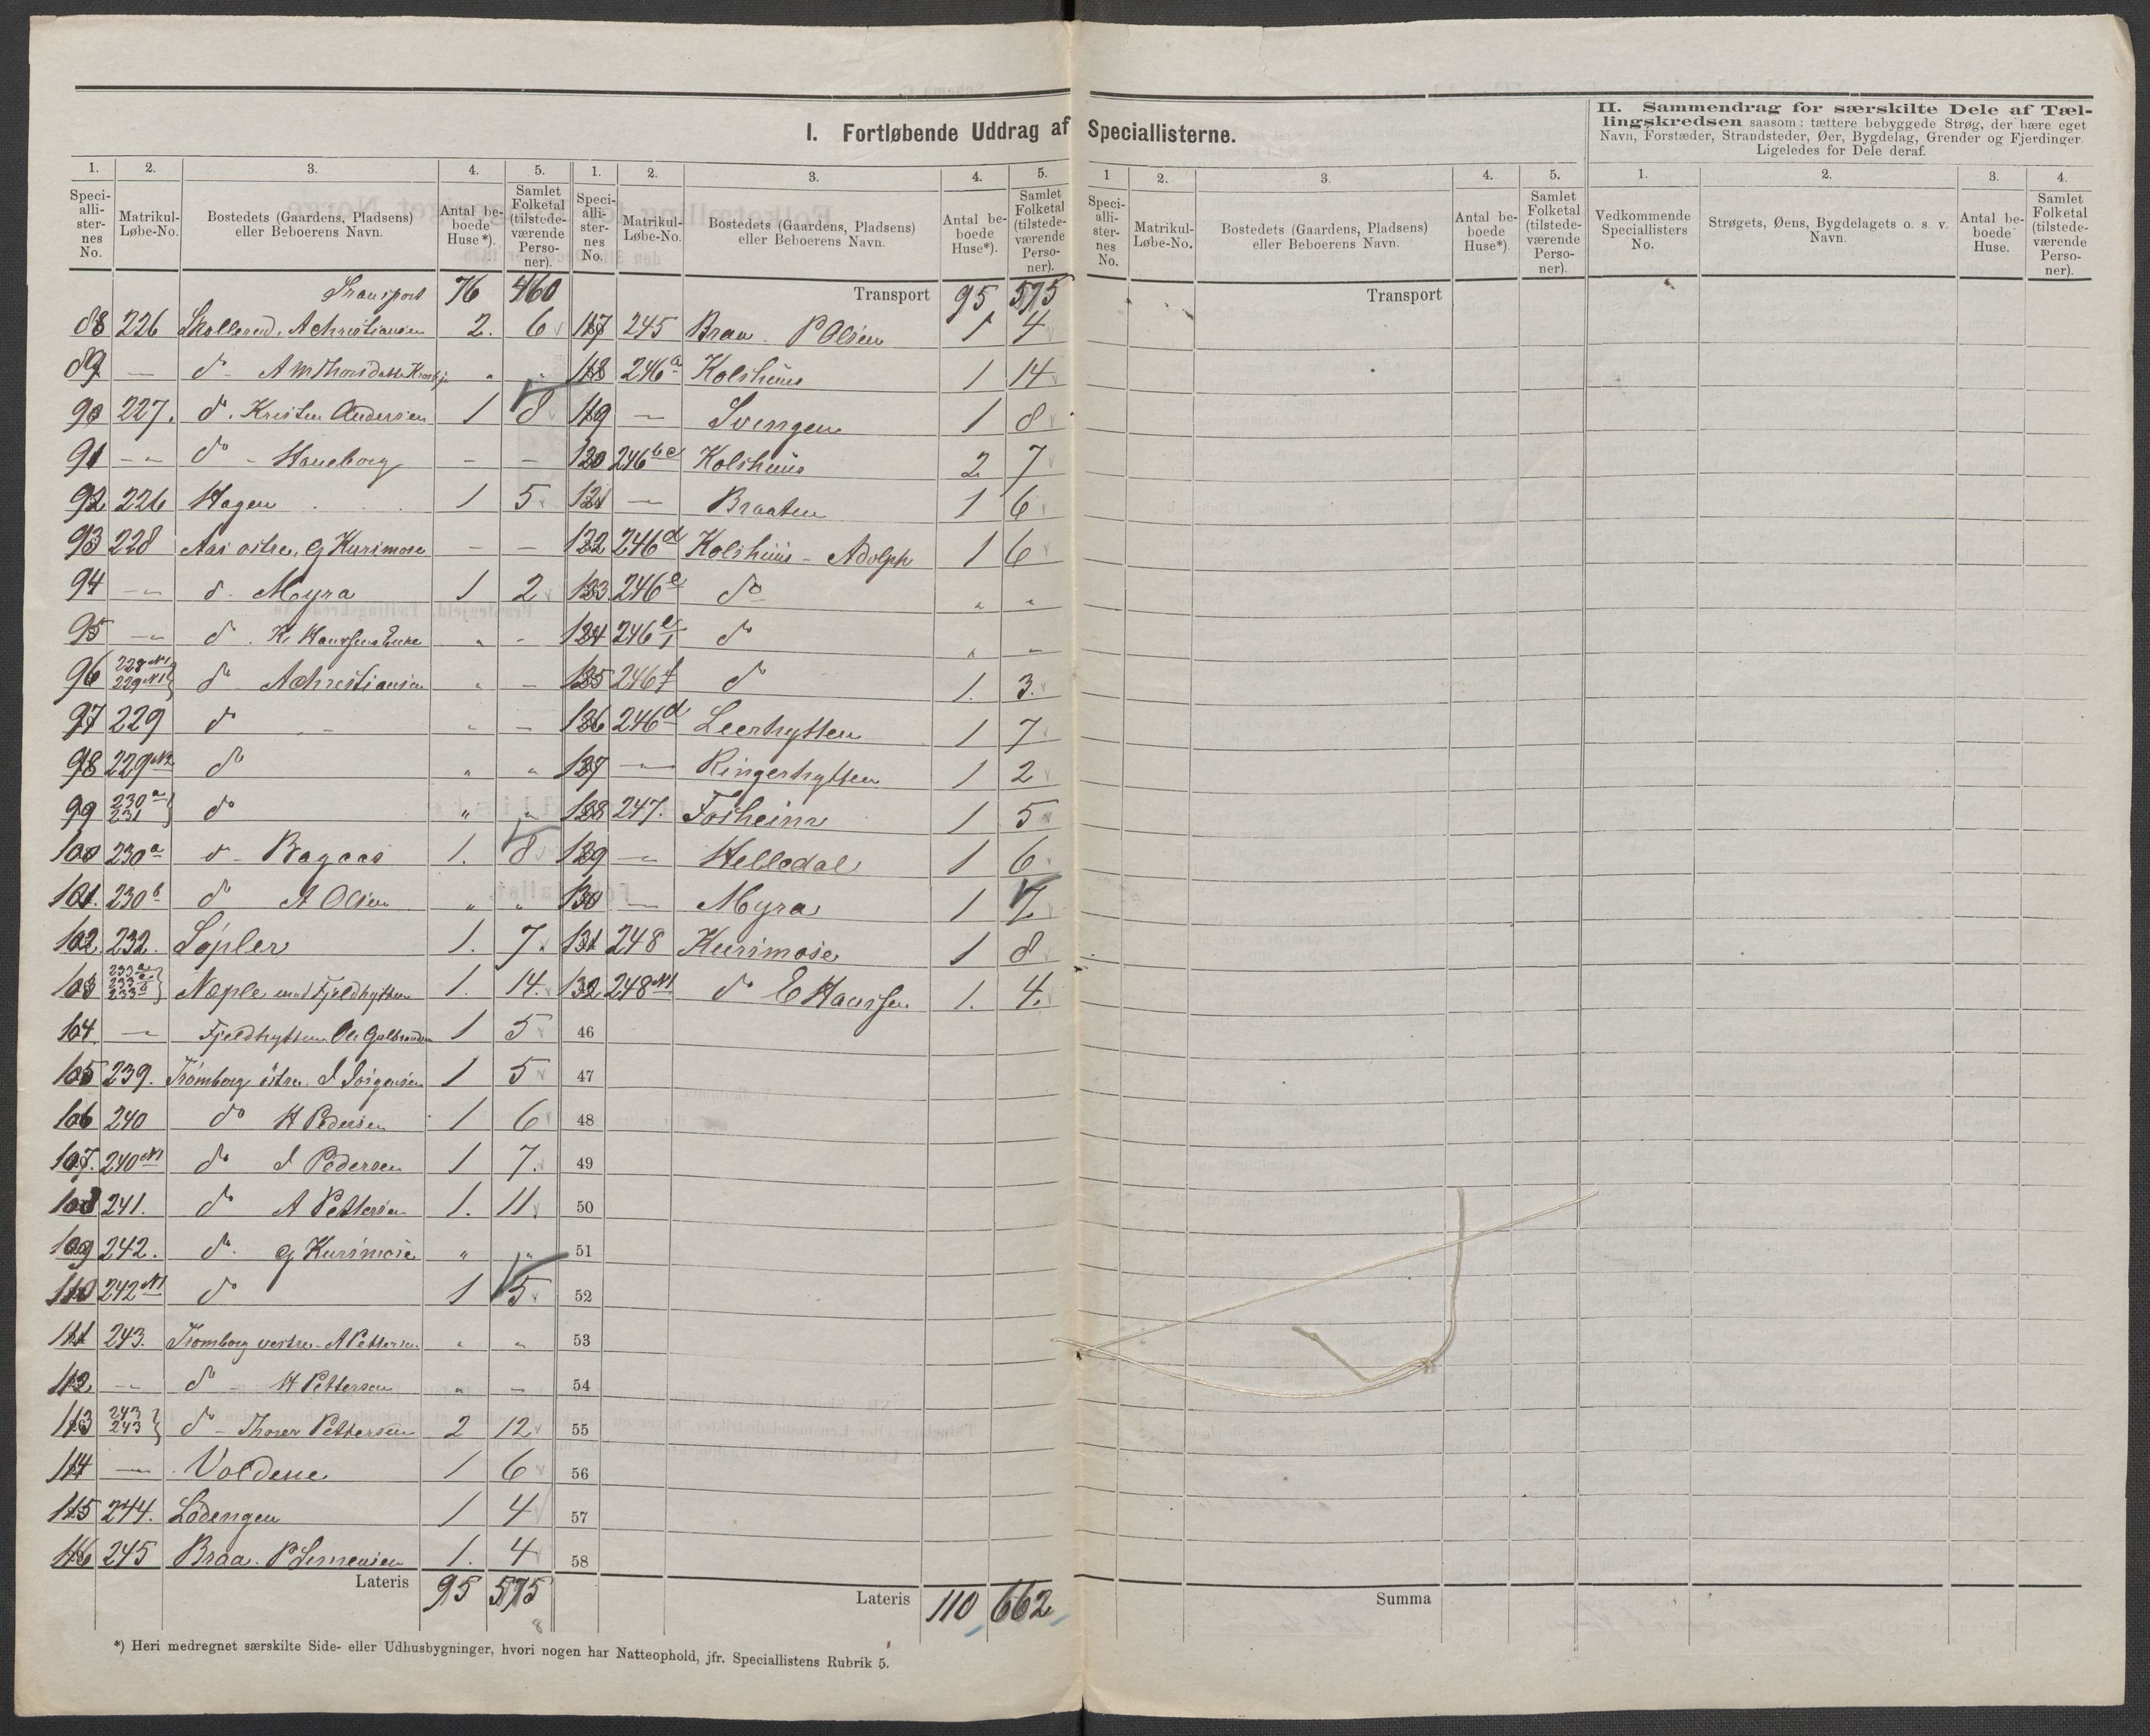 I. Fortløbende Uddrag af Speciallisterne.
II. Sammendrag for særskilte Dele af Tæl-
lingskredsen saasom: tættere bebyggede Strøg, der bære eget
Navn, Forstæder, Strandsteder, Øer, Bygdelag, Grender og Fjerdinger.
Ligeledes for Dele deraf.
1. 2. 3. 4. 5.
Speci-alli-ster-nes No. Matrikul-Løbe-No. Bostedets (Gaardens, Pladsens) eller Beboerens Navn. Antal be-boede Huse*). Samlet Folketal (tilstede-værende Perso-ner).
Transport 76 460
88 226 Skollerud, A Christiansen 2. 6
89 — do A M Thorsdatter
90 227. do. Kristen Andersen 1 8
91 -"- do - Haneborg - -
92 226 Hagen 1 5
93 228 Aas østre, G Kurimose - -
94 -"- d. Myra 1 2
95 -"- do. K Hanssens Enke " -
96 228 N1 229 N1 } do A Christiansen " -
97 229 do " -
98 229 N2 do " "
99 230a 231 } do " "
100 230a d - Bagaas 1. 8
101. 230b do A Olsen " "
102. 232. Søpler 1. 7.
103 Næple med Fjeldhytten 1. 14.
104. — Fjeldhytten Ole Gulbrandsen 1 5
105 239. Trømborg østre. J Jørgensen 1 5
106 240 do H Pedersen 1 6
107. 240 N1 do J Pedersen 1 7.
108 241. do A Pettersen 1. 11
109 242. do. G Kurimose " "
110 242 N1 do 1 5
111 243. Trømborg vestre - A Pettersen " "
112 -"- do - H Pettersen " -
113 243 243 } do - Thorer Pettersen 2 12
114 — Voldene 1 6
115 244. Lødengen 1 4
116 245 Braa. P Simensen 1. 4
Lateris 95 575
8
1. 2. 3. 4. 5.
Speci-alli-ster-nes No. Matrikul-Løbe-No. Bostedets (Gaardens, Pladsens) eller Beboerens Navn. Antal be-boede Huse*). Samlet Folketal (tilstede-værende Perso-ner).
Transport 95 575
117 245 Braa P Olsen 1 4
118 246a Kolshuus 1 14
119 — Svingen 1 8
120 246bc Kolshuus 2 7
121 — Braaten 1 6
122 246d Kolshuus - Adolph 1 6
123. 246e do " "
124 246e/1 do " -
125 246f do 1. 3.
126 246d Leerhytten 1 7
127 — Ringerhytten 1 2
128 247. Fosheim 1 5
129 -"- Helledal 1 6
130 — Myra 1 7
131 248 Kurimose 1 8
132 248 N1 do E Hanssen 1. 4.
46
47
48
49
50
51
52
53
54
55
56
57
58
Lateris 110 662
1 2. 3. 4. 5.
Speci-alli-ster-nes No. Matrikul-Løbe-No. Bostedets (Gaardens, Pladsens) eller Beboerens Navn. Antal be-boede Huse*). Samlet Folketal (tilstede-værende Perso-ner).
Transport
Summa
1. 2. 3. 4.
Vedkommende Speciallisters No. Strøgets, Øens, Bygdelagets o. s. v. Navn. Antal be-boede Huse. Samlet Folketal (tilstede-værende Perso-ner).
*) Heri medregnet særskilte Side- eller Udhusbygninger, hvori nogen har Natteophold, jfr. Speciallistens Rubrik 5.